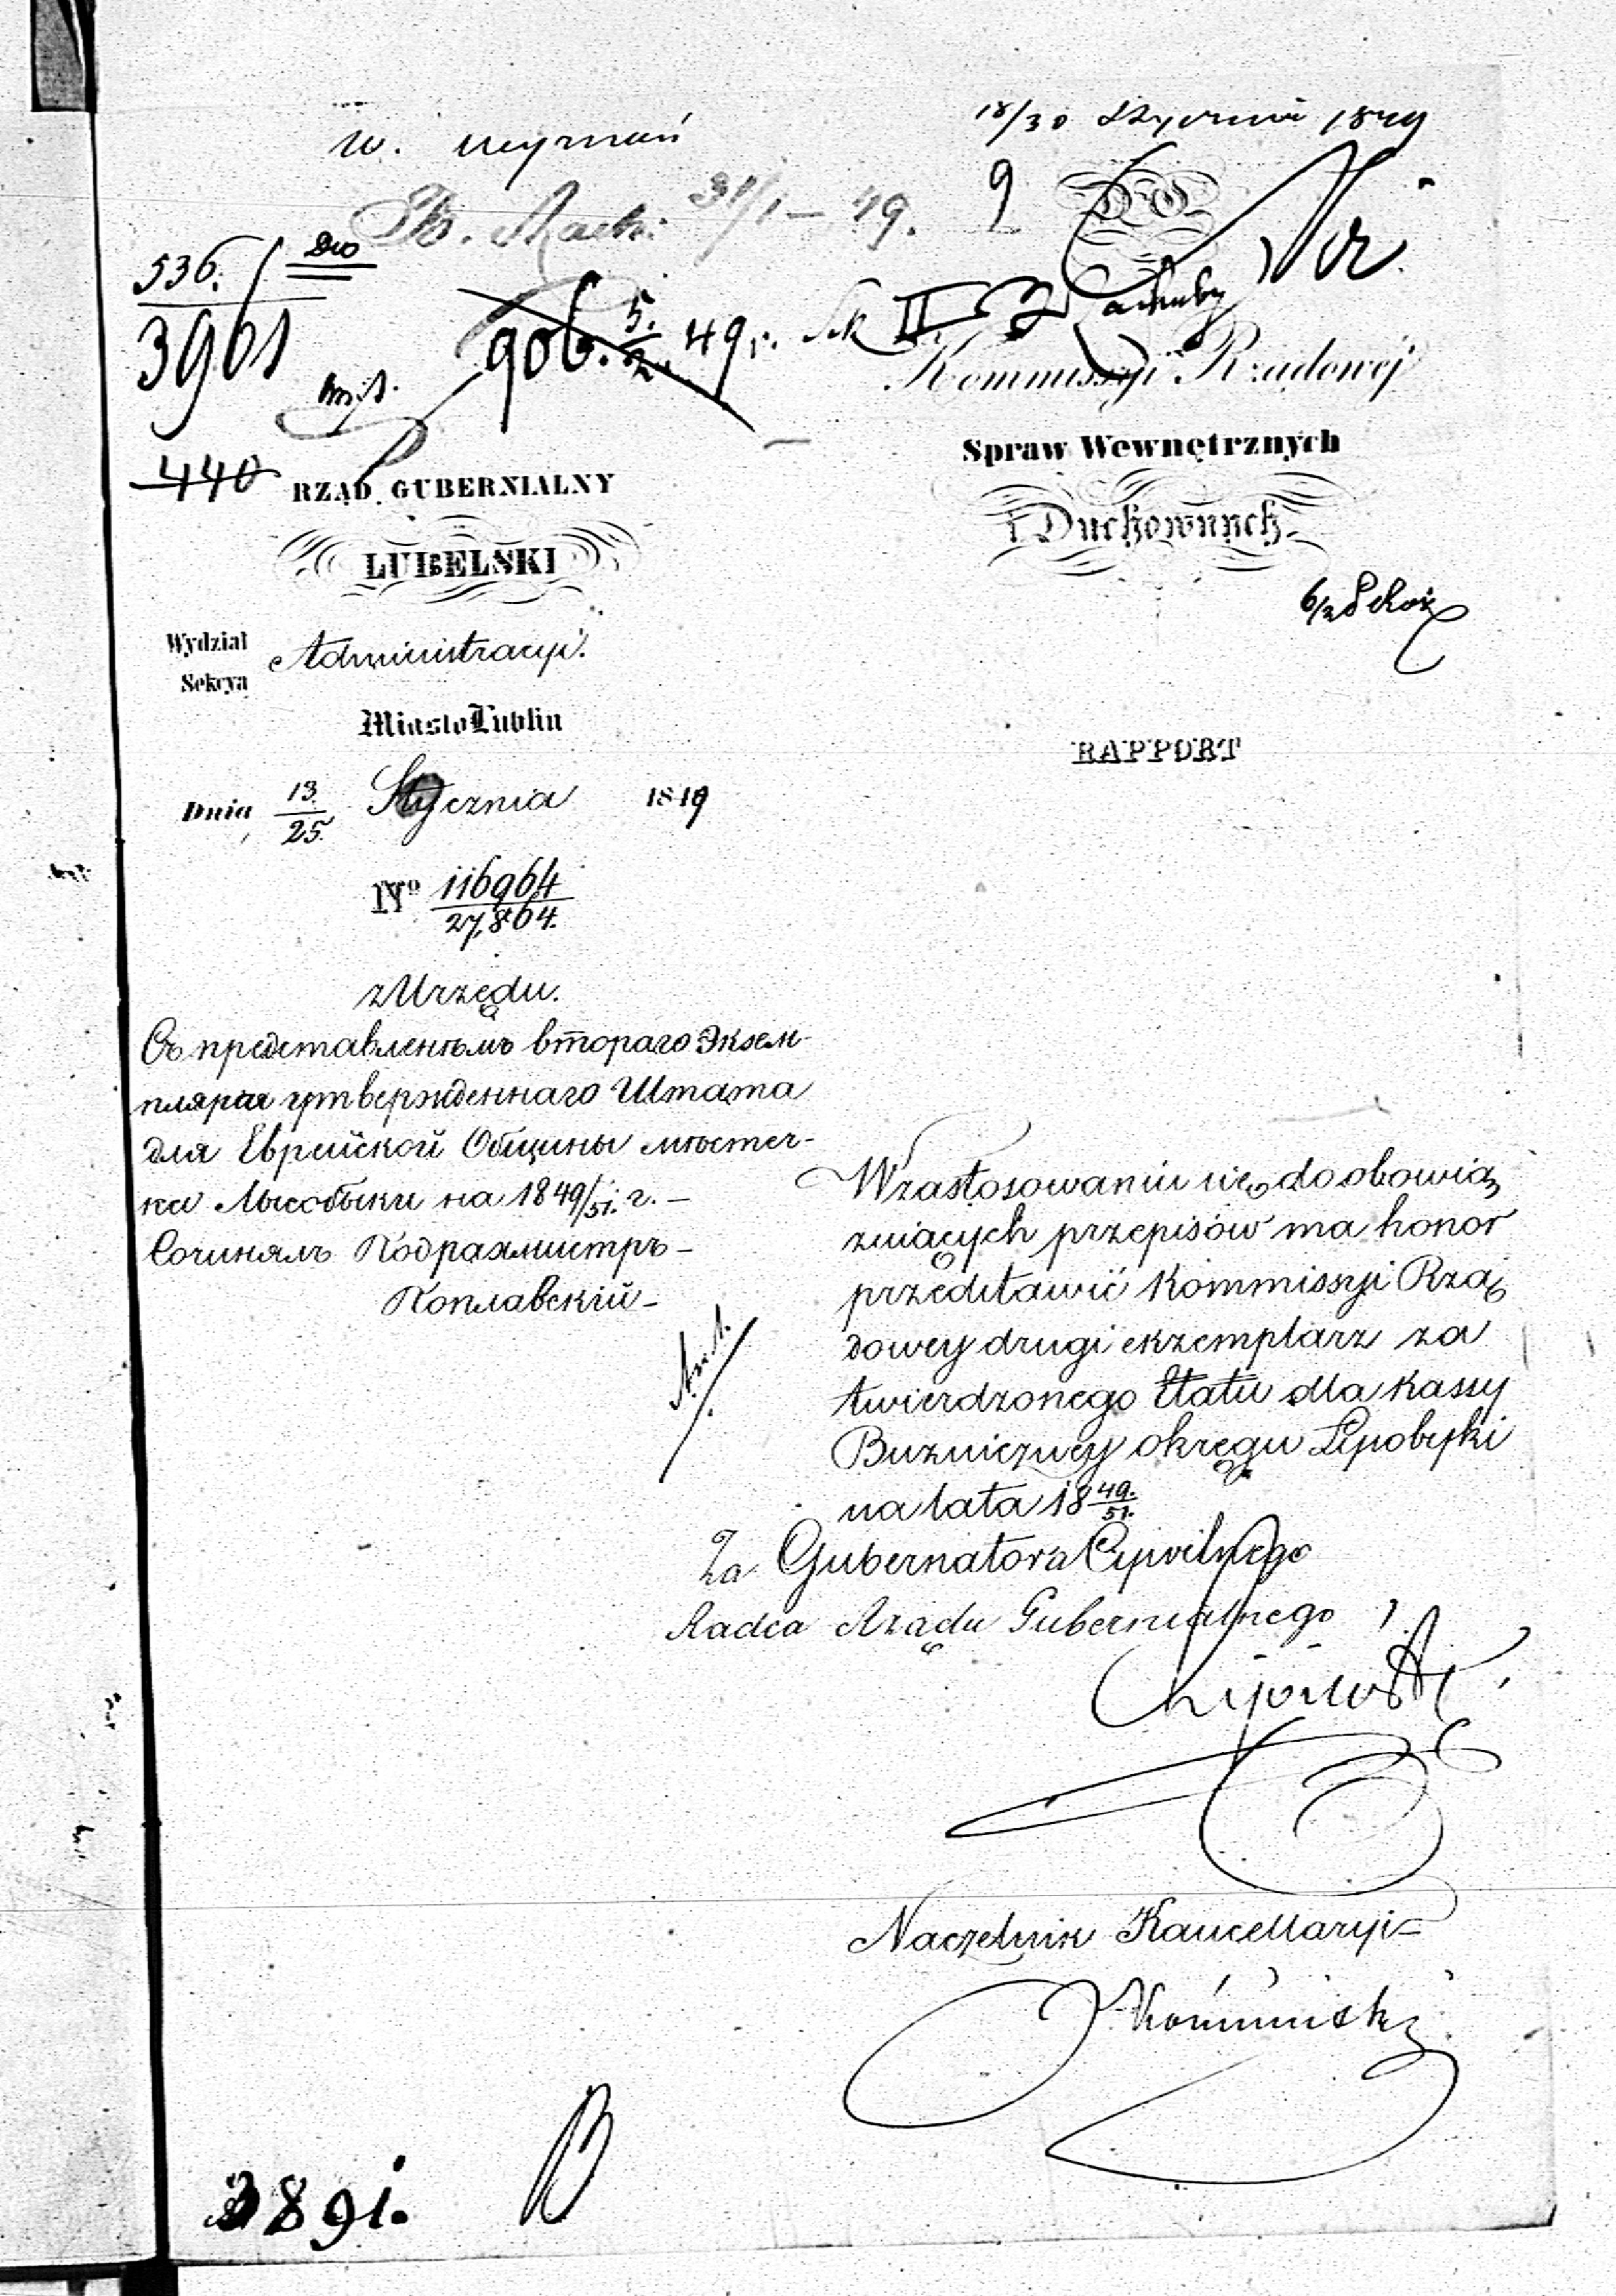 18/30 Stycznia 1849
536.
3961
Dwo
31/1 – 49.
9
906. 5./2. 49 r.
Sk II
Do
Kommissyi Rządowéj
440
Spraw Wewnętrznych
i Duchownych.
RZĄD GUBERNIALNY
LUBELSKI
Wydział Administracyi.
Sekcya
Miasto Lublin
RAPPORT
Dnia 13./25. Stycznia 1849
Nº 116964/27,864.
z Urzędu.
Съ представленіемъ втораго Экзем-
пляра утвержденнаго Штата
для Еврейской Общины мѣстеч-
ка Лысобыки на 1849/51. г. –
Сочинялъ Подрахмистръ –
Коплавскій –
W zastosowaniu się do obowią
zuiących przepisów ma honor
przedstawić Kommissyi Rzą
dowey drugi ekzemplarz za
twierdzonego Etatu dla kassy
Bużniczney okręgu Łysobyki
na lata 18 49./51.
Za Gubernatora Cywilnego
Radca Rządu Gubernialnego
Naczelnik Kancellaryi
3891.